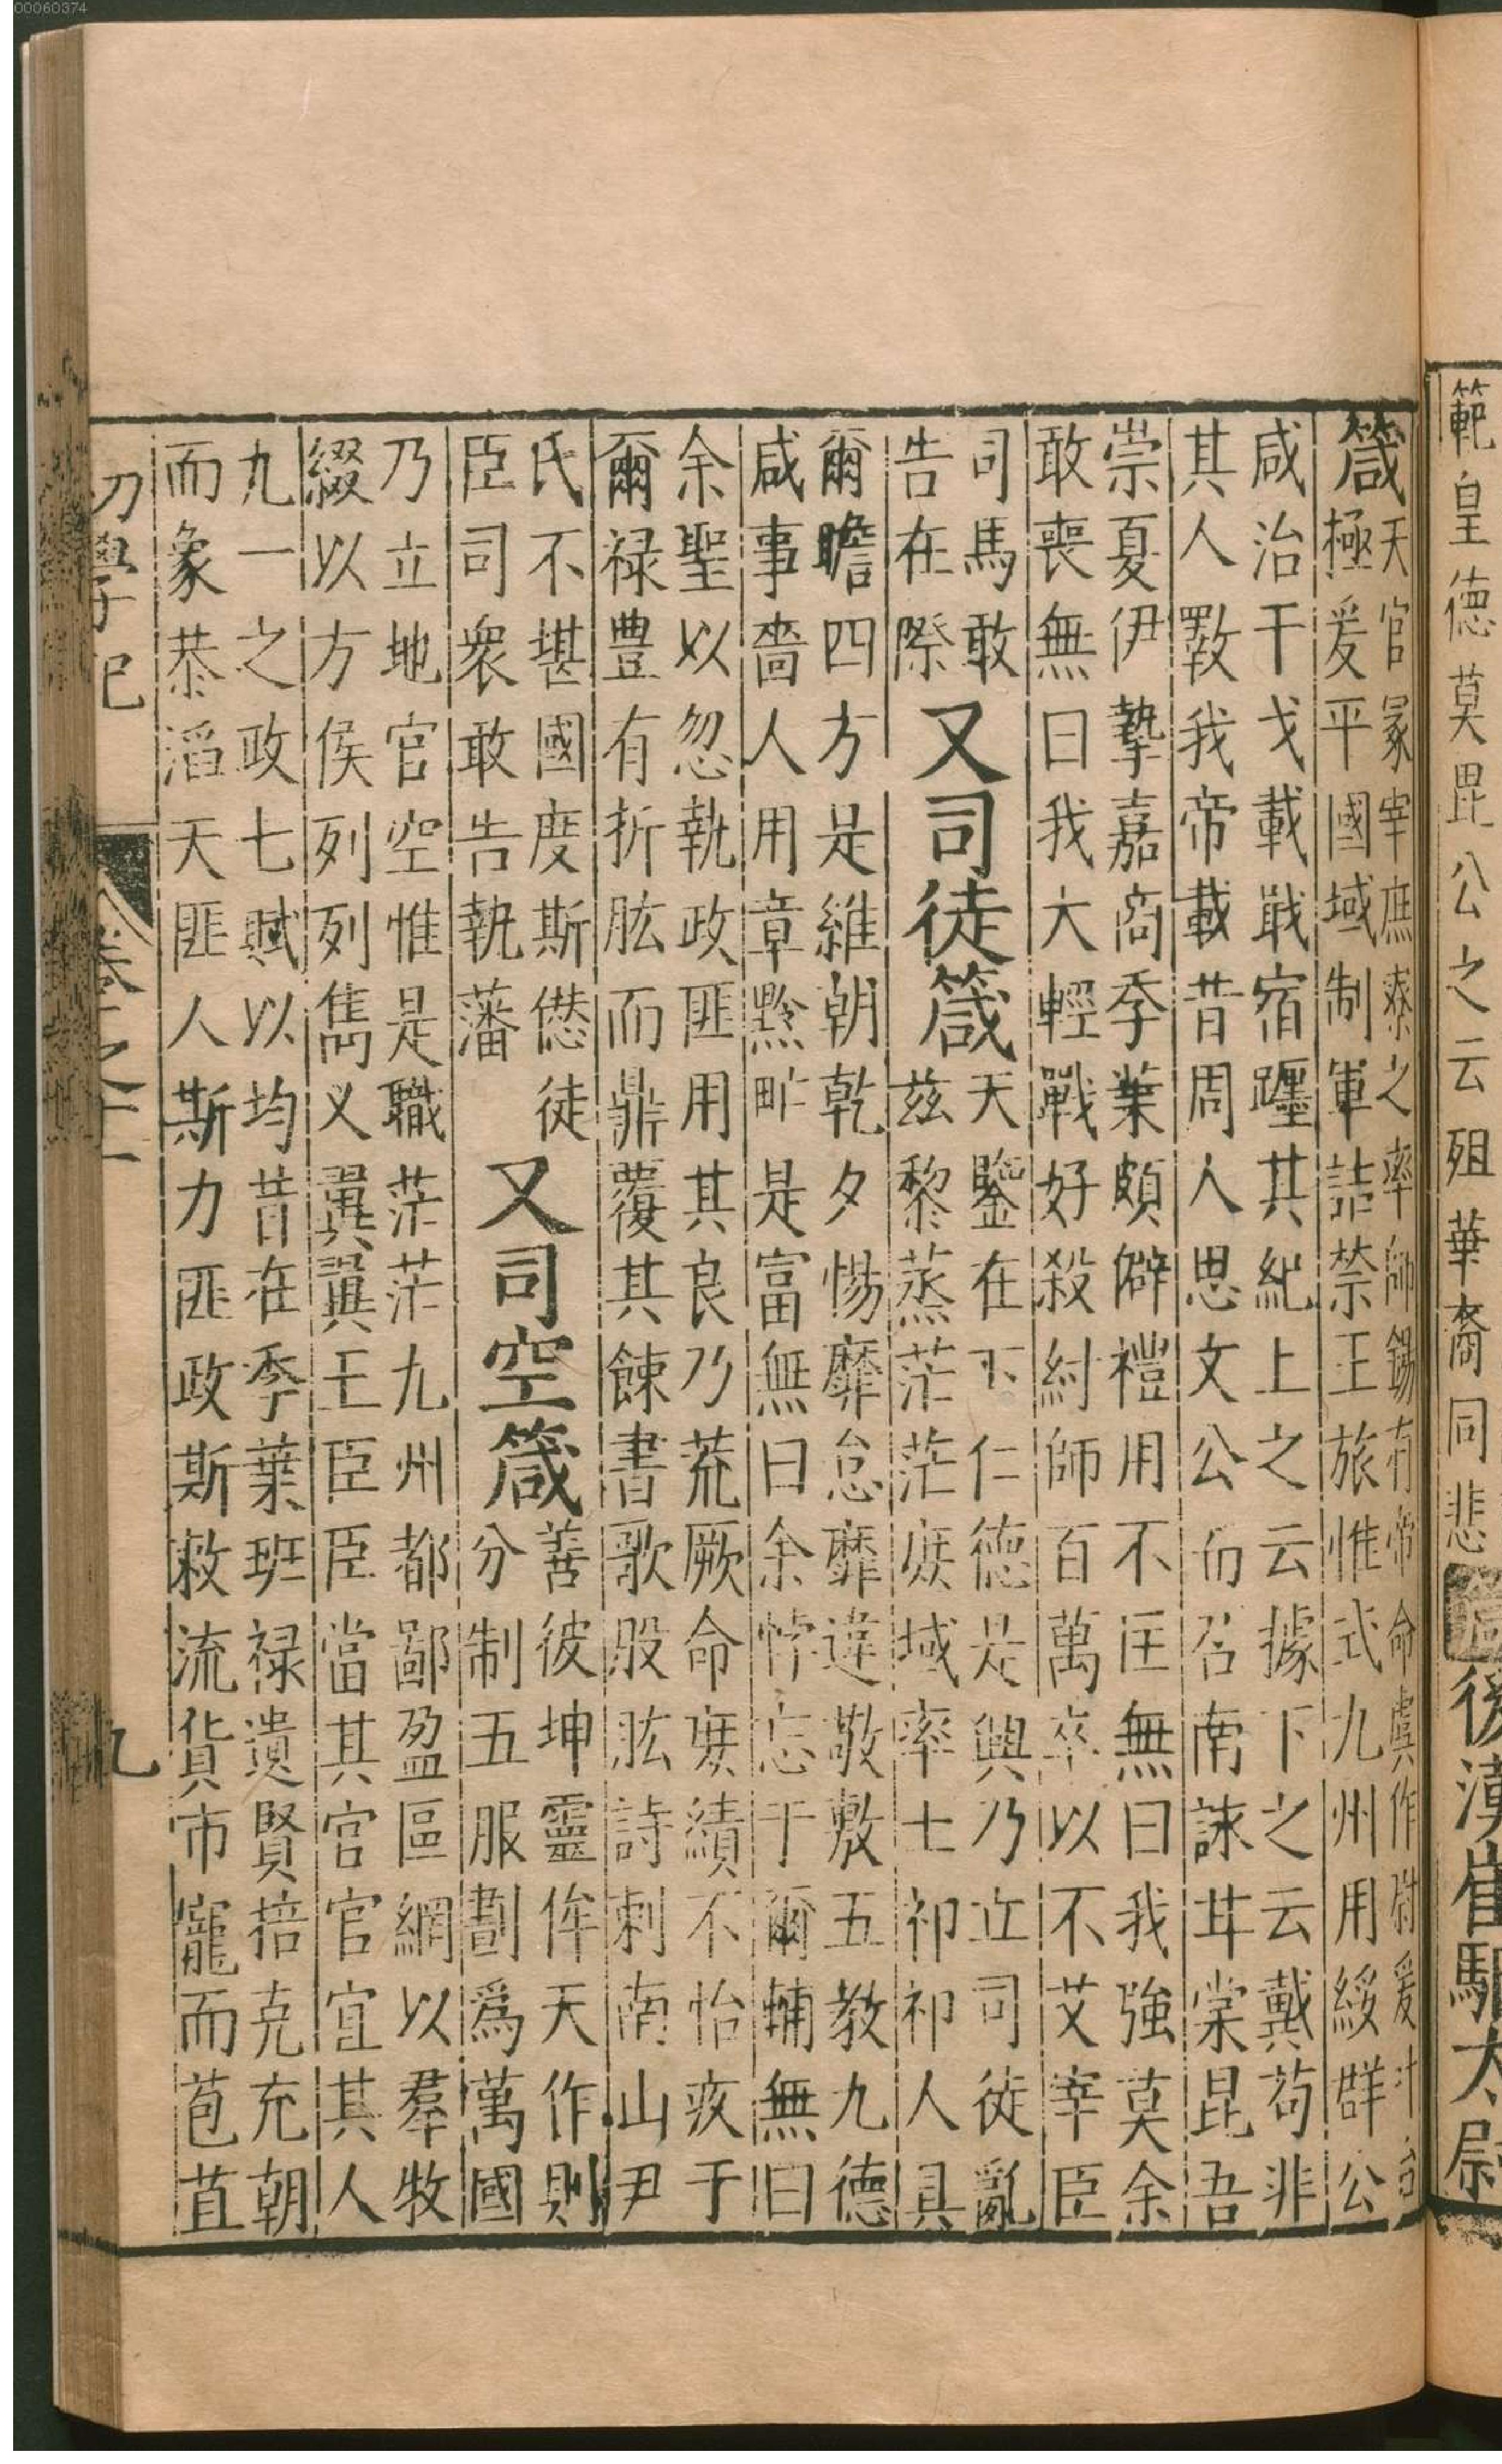 00060374
範皇德莫毘公之云殂華裔同悲箴後漢崔駰太尉
箴
天官冢宰庶寮之率師錫有帝命虞作尉爰
極爰平國域制軍詰禁王旅惟式九州用綏群公
咸治干戈載戢宿躔其紀上之云據下之云戴苟非
其人斁我帝載昔周人思文公而召南詠甘棠昆吾
崇夏伊摯嘉商季葉頗僻禮用不匡無曰我強莫余
敢喪無曰我大輕戰好殺紂師百萬卒以不艾宰臣
司馬敢
告在際
又司徒箴
天鑒在下仁德是興乃立司徒亂
茲黎蒸茫茫庶域率土祁祁人具
爾瞻四方是維朝乾夕惕靡怠靡違敬敷五教九德
咸事嗇人用章黔甿是富無曰余悖忘于爾輔無曰
余聖以忽執政匪用其良乃荒厥命庶績不怡疚于
爾禄豊有折肱而鼎覆其餗書歌股肱詩刺南山尹
氏不堪國度斯愆徒
臣司衆敢告執藩
又司空箴
善彼坤靈侔天作則
分制五服劃爲萬國
乃立地官空惟是職茫茫九州都鄙盈區網以羣牧
綴以方侯列列雋乂翼翼王臣臣當其官官宜其人
九一之政七賦以均昔在季葉班禄遺賢掊克充朝
而象恭滔天匪人斯力匪政斯救流貨市寵而苞苴
初學記
卷之十一
九